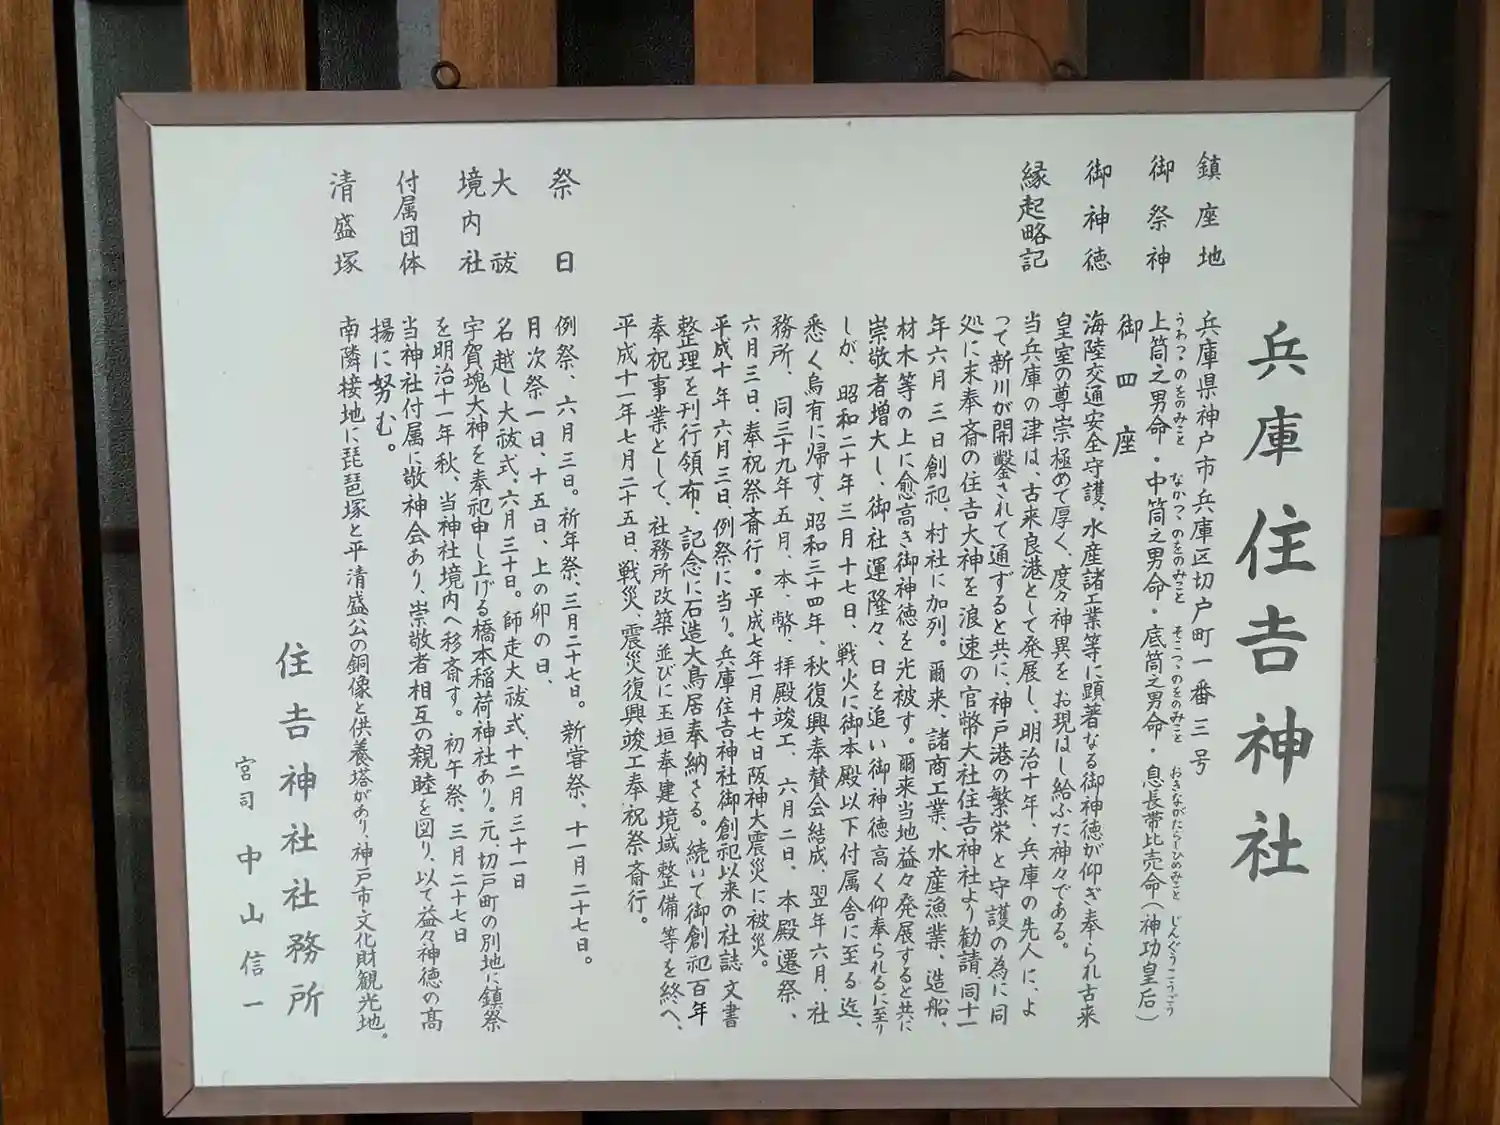 兵庫住吉神社
鎮座地
兵庫県神戸市兵庫区切戸町一番三号
御祭神
うわつつのをのみこと なかつつのをのみこと そこつつのをのみこと おきながたらしひめのみこと じんぐうこうごう
上筒之男命・中筒之男命・底筒之男命・息長帯比売命(神功皇后)
御四座
御神徳
海陸交通安全守護、水産諸工業等に顕著なる御神徳が仰ぎ奉られ古来
皇室の尊崇極めて厚く、度々神異をお現はし給ふた神々である。
縁起略記
当兵庫の津は、古来良港として発展し、明治十年、兵庫の先人に、よ
って新川が開鑿されて通ずると共に、神戸港の繁栄と守護の為に同
処に末奉斎の住吉大神を浪速の官幣大社住吉神社より勧請、同十一
年六月三日創祀、村社に加列。爾来、諸商工業、水産漁業、造船、
材木等の上に愈高き御神徳を光被す。爾来当地益々発展すると共に
崇敬者増大し、御社運隆々、日を追い御神徳高く仰奉られるに至り
しが、昭和二十年三月十七日、戦火に御本殿以下付属舎に至る迄、
悉く烏有に帰す、昭和三十四年、秋復興奉賛会結成、翌年六月、社
務所、同三十九年五月、本、幣、拝殿竣工、六月二日、本殿遷祭、
六月三日、奉祝祭斎行。平成七年一月十七日阪神大震災に被災。
平成十年六月三日、例祭に当り。兵庫住吉神社御創祀以来の社誌文書
整理を刊行領布、記念に石造大鳥居奉納さる。続いて御創祀百年
奉祝事業として、社務所改築並びに玉垣奉建境域整備等を終へ、
平成十一年七月二十五日、戦災、震災復興竣工奉祝祭斎行。
祭日
例祭、六月三日。祈年祭、三月二十七日。新嘗祭、十一月二十七日。
月次祭一日、十五日、上の卯の日、
大祓
名越し大祓式、六月三十日。師走大祓式、十二月三十一日
境内社
宇賀魂大神を奉祀申し上げる橋本稲荷神社あり。元、切戸町の別地に鎮祭
を明治十一年秋、当神社境内へ移斎す。初午祭、三月二十七日
付属団体
当神社付属に敬神会あり、崇敬者相互の親睦を図り、以て益々神徳の高
揚に努む。
清盛塚
南隣接地に琵琶塚と平清盛公の銅像と供養塔があり、神戸市文化財観光地。
住吉神社社務所
宮司 中山信一